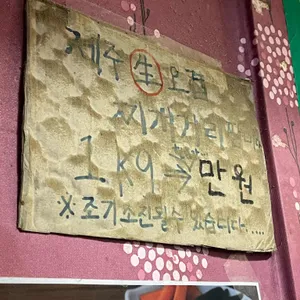 제주 生 오겹
찌개거리
1kg → 만원
※ 조기소진될수 있습니다....